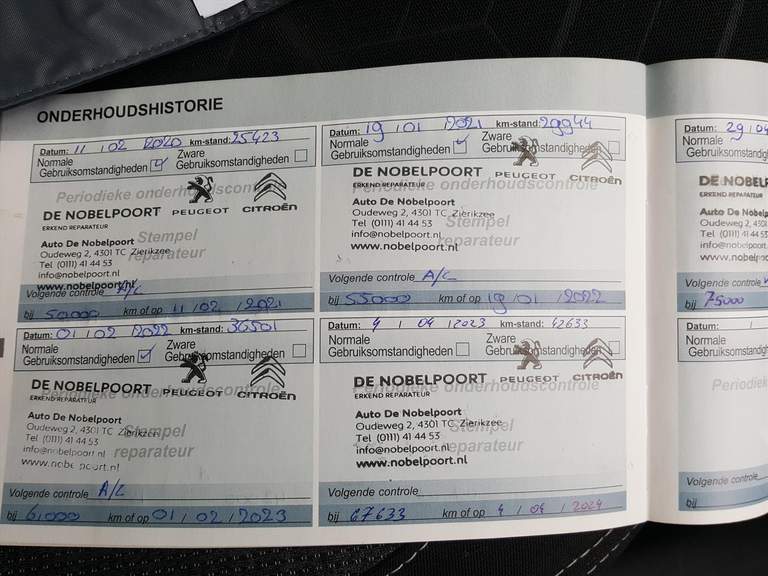 ONDERHOUDSHISTORIE
Datum: 11 / 02 / 2020 km-stand: 25423
Normale Gebruiksomstandigheden Zware Gebruiksomstandigheden
Periodieke onderhoudscontrole
DE NOBELPOORT PEUGEOT CITROËN
ERKEND REPARATEUR
Auto De Nobelpoort
Oudeweg 2, 4301 TC Zierikzee
Tel (0111) 41 44 53
info@nobelpoort.nl
www.nobelpoort.nl
Stempel reparateur
Volgende controle A/C
bij 50000 km of op 11 / 02 / 2021
Datum: 19 / 01 / 2021 km-stand: 29944
Normale Gebruiksomstandigheden Zware Gebruiksomstandigheden
Periodieke onderhoudscontrole
DE NOBELPOORT PEUGEOT CITROËN
ERKEND REPARATEUR
Auto De Nobelpoort
Oudeweg 2, 4301 TC Zierikzee
Tel (0111) 41 44 53
info@nobelpoort.nl
www.nobelpoort.nl
Stempel reparateur
Volgende controle A/C
bij 55000 km of op 19 / 01 / 2022
Datum: 01 / 02 / 2022 km-stand: 36501
Normale Gebruiksomstandigheden Zware Gebruiksomstandigheden
Periodieke onderhoudscontrole
DE NOBELPOORT PEUGEOT CITROËN
ERKEND REPARATEUR
Auto De Nobelpoort
Oudeweg 2, 4301 TC Zierikzee
Tel (0111) 41 44 53
info@nobelpoort.nl
www.nobelpoort.nl
Stempel reparateur
Volgende controle A/C
bij 61000 km of op 01 / 02 / 2023
Datum: 4 / 04 / 2023 km-stand: 42633
Normale Gebruiksomstandigheden Zware Gebruiksomstandigheden
Periodieke onderhoudscontrole
DE NOBELPOORT PEUGEOT CITROËN
ERKEND REPARATEUR
Auto De Nobelpoort
Oudeweg 2, 4301 TC Zierikzee
Tel (0111) 41 44 53
info@nobelpoort.nl
www.nobelpoort.nl
Stempel reparateur
Volgende controle
bij 67633 km of op 4 / 04 / 2024
Datum: 29 / 04
Normale
Gebruiksomstandig
DE NOBELP
ERKEND REPARATEUR
Auto De Nobelpoo
Oudeweg 2, 4301
Tel (0111) 41 44 53
Volgende controle
bij 75000
Datum: /
Normale
Gebruiksomstandig
Periodieke
Volgende controle
bij